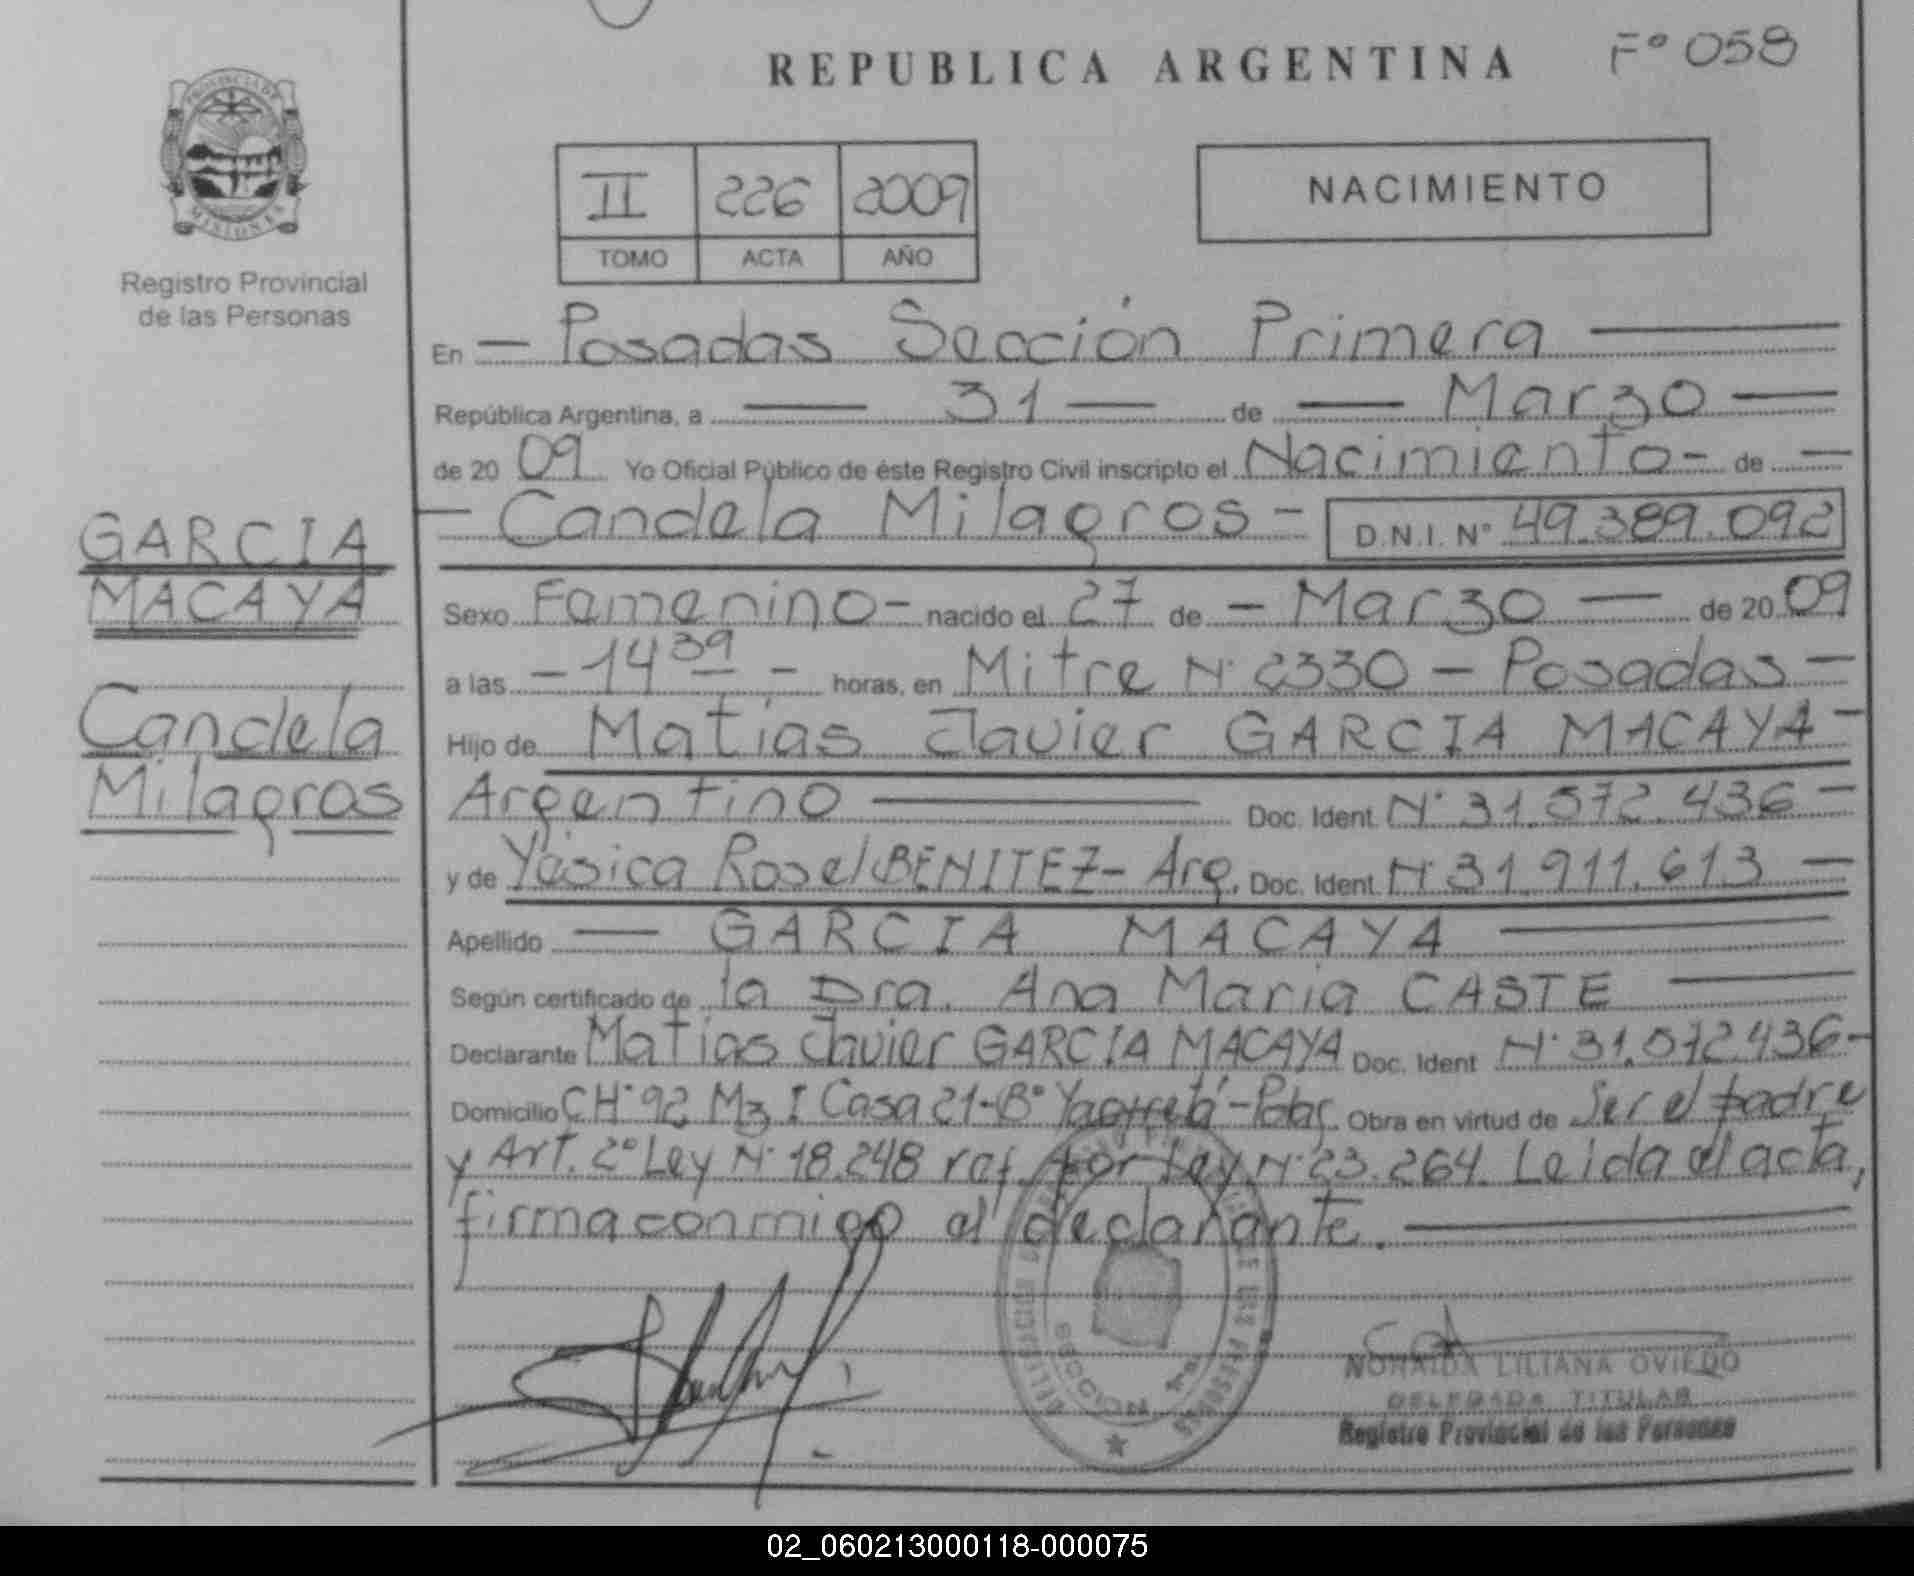 REPUBLICA ARGENTINA
Fº 058
PROVINCIA DE
MISIONES
Registro Provincial
de las Personas
II 226 2009
TOMO ACTA AÑO
NACIMIENTO
En - Posadas Sección Primera
República Argentina, a 31 de Marzo
de 20 09 Yo Oficial Público de éste Registro Civil inscripto el Nacimiento - de
- Candela Milagros - D.N.I. Nº 49.389.092
GARCIA
MACAYA
Candela
Milagros
Sexo Femenino - nacido el 27 de - Marzo - de 20 09
a las - 14 39 - horas, en Mitre Nº 2330 - Posadas -
Hijo de Matías Javier GARCIA MACAYA -
Argentino Doc. Ident. Nº 31.572.436 -
y de Yesica Rosel BENITEZ - Arg. Doc. Ident. Nº 31.911.613 -
Apellido - GARCIA MACAYA
Según certificado de la Dra. Ana Maria CASTE
Declarante Matias Javier GARCIA MACAYA Doc. Ident Nº 31.572.436 -
Domicilio CHº 92 Mz I Casa 21 - Bº Yacyretá - Pdas. Obra en virtud de Ser el padre
y Art. 2º Ley Nº 18.248 ref. por Ley Nº 23.264. Leida el acta,
firma conmigo el declarante.
SECCION 1ra
NOHAIDA LILIANA OVIEDO
DELEGADA TITULAR
Registro Provincial de las Personas
02_060213000118-000075